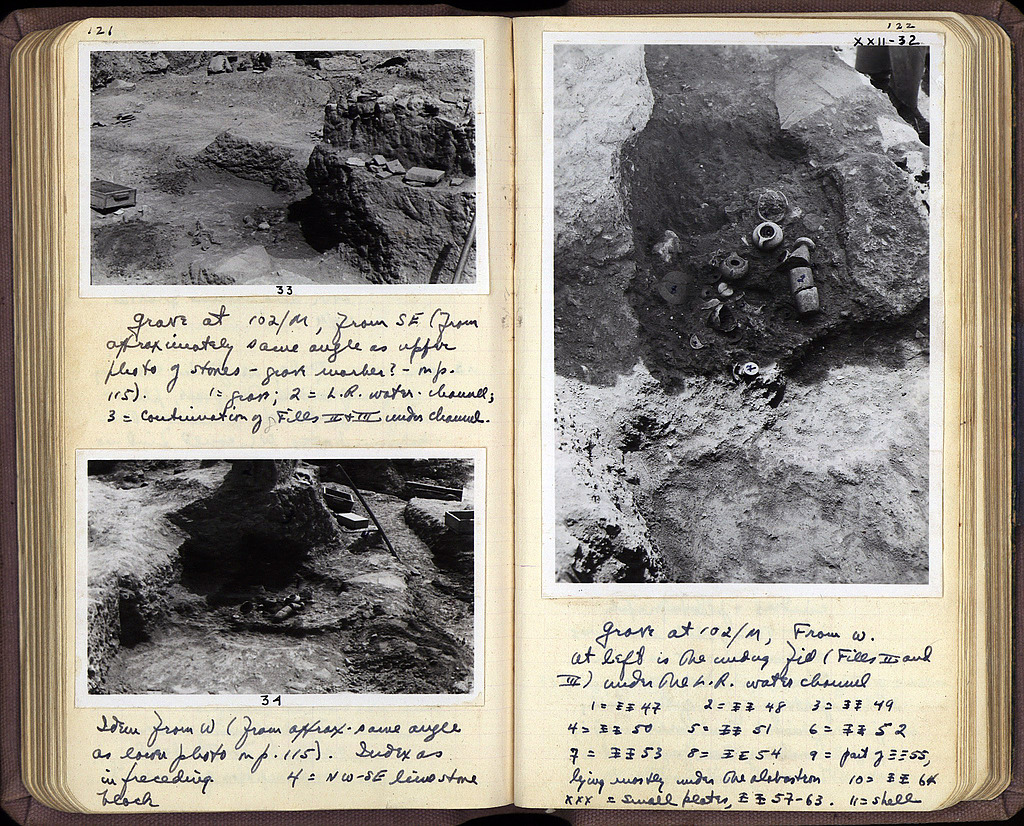 121
33
Grave at 102/M, from SE (from
approximately same angle as upper
photo of stones - grave marker? - on p.
115). 1 = grave; 2 = L.R. water-channel;
3 = continuation of Fills II + III under channel.
34
Idem from W (from approx. same angle
as lower photo on p. 115). Index as
in preceding. 4 = NW-SE limestone
block
122
XXII-32
Grave at 102/M, From W.
At left is the ending fill (Fills II and
III) under the L.R. water channel
1 = 47 2 = 48 3 = 49
4 = 50 5 = 51 6 = 52
7 = 53 8 = 54 9 = part of 55,
lying mostly under the alabastron 10 = 64
xxx = small plates, 57-63. 11 = shell